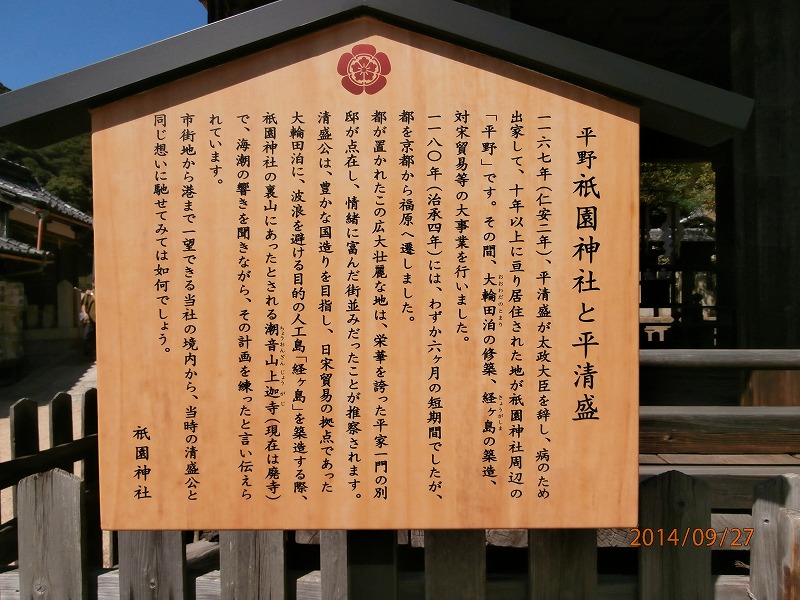 平野祇園神社と平清盛
一一六七年（仁安二年）、平清盛が太政大臣を辞し、病のため
出家して、十年以上に亘り居住された地が祇園神社周辺の
「平野」です。その間、大輪田泊の修築、経ヶ島の築造、
おおわだのとまり
きょうがしま
対宋貿易等の大事業を行いました。
一一八〇年（治承四年）には、わずか六ヶ月の短期間でしたが、
都を京都から福原へ遷しました。
都が置かれたこの広大壮麗な地は、栄華を誇った平家一門の別
邸が点在し、情緒に富んだ街並みだったことが推察されます。
清盛公は、豊かな国造りを目指し、日宋貿易の拠点であった
大輪田泊に、波浪を避ける目的の人工島「経ヶ島」を築造する際、
祇園神社の裏山にあったとされる潮音山上迦寺（現在は廃寺）
ちょうおんざんじょうがじ
で、海潮の響きを聞きながら、その計画を練ったと言い伝えら
れています。
市街地から港まで一望できる当社の境内から、当時の清盛公と
同じ想いに馳せてみては如何でしょう。
祇園神社
2014/09/27